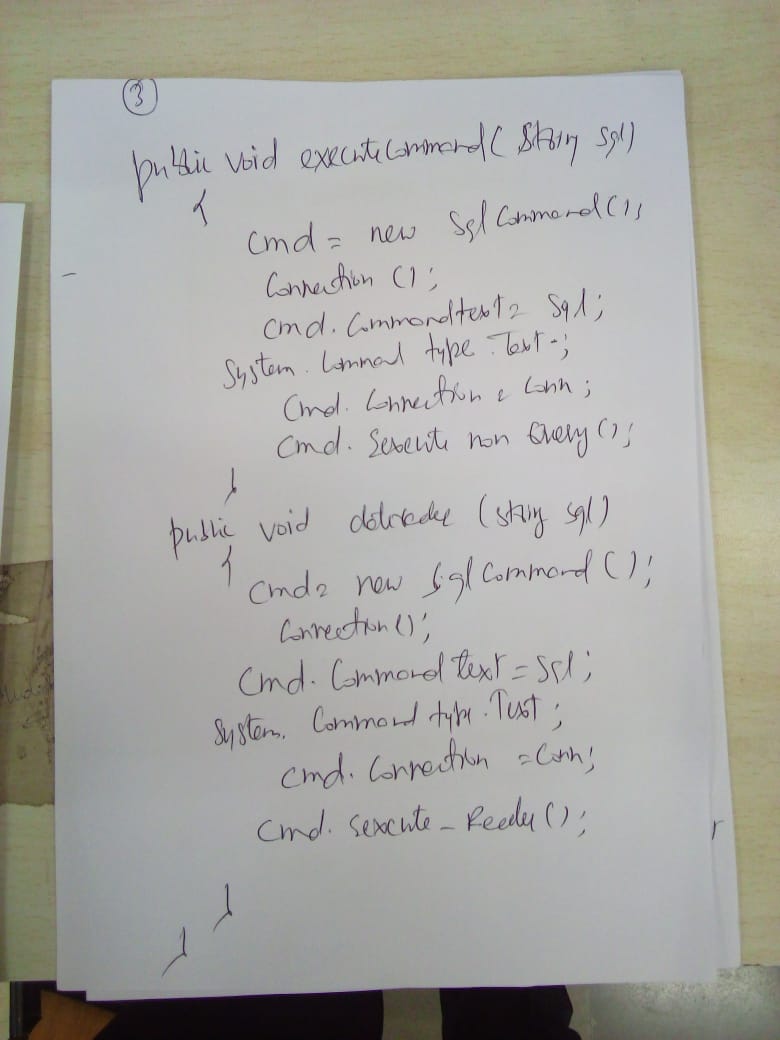 3
public void executeCommand( String sql)
{
cmd = new Sql Command();
Connection ();
cmd. Commandtext = Sql;
System. Command type. Text-;
Cmd. Connection = Conn;
Cmd. Sexecute non Query();
}
public void datareader (string sql)
{
Cmd = new Sql Command ();
Connection();
Cmd. Command text = Sql;
System. Command type. Text;
Cmd. Connection = Conn;
Cmd. sexcute - Reeder();
}
}